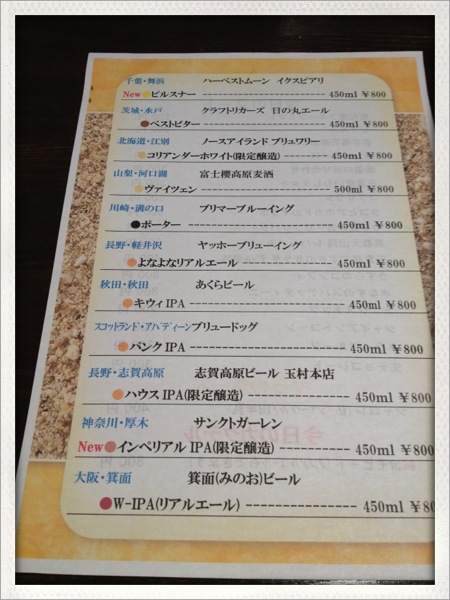 千葉・舞浜 ハーベストムーン イクスピアリ
New●ピルスナー ---------- 450ml ¥800
茨城・水戸 クラフトリカーズ 日の丸エール
●ベストビター ---------- 450ml ¥800
北海道・江別 ノースアイランド ブリュワリー
●コリアンダーホワイト(限定醸造) ---------- 450ml ¥800
山梨・河口湖 富士櫻高原麦酒
●ヴァイツェン ---------- 500ml ¥800
川崎・溝の口 ブリマーブルーイング
●ポーター ---------- 450ml ¥800
長野・軽井沢 ヤッホーブリューイング
●よなよなリアルエール ---------- 450ml ¥800
秋田・秋田 あくらビール
●キウィIPA ---------- 450ml ¥800
スコットランド・アバディーン ブリュードッグ
●パンクIPA ---------- 450ml ¥800
長野・志賀高原 志賀高原ビール 玉村本店
●ハウスIPA(限定醸造) ---------- 450ml ¥800
神奈川・厚木 サンクトガーレン
New●インペリアルIPA(限定醸造) ---------- 450ml ¥80
大阪・箕面 箕面(みのお)ビール
●W-IPA(リアルエール) ---------- 450ml ¥80